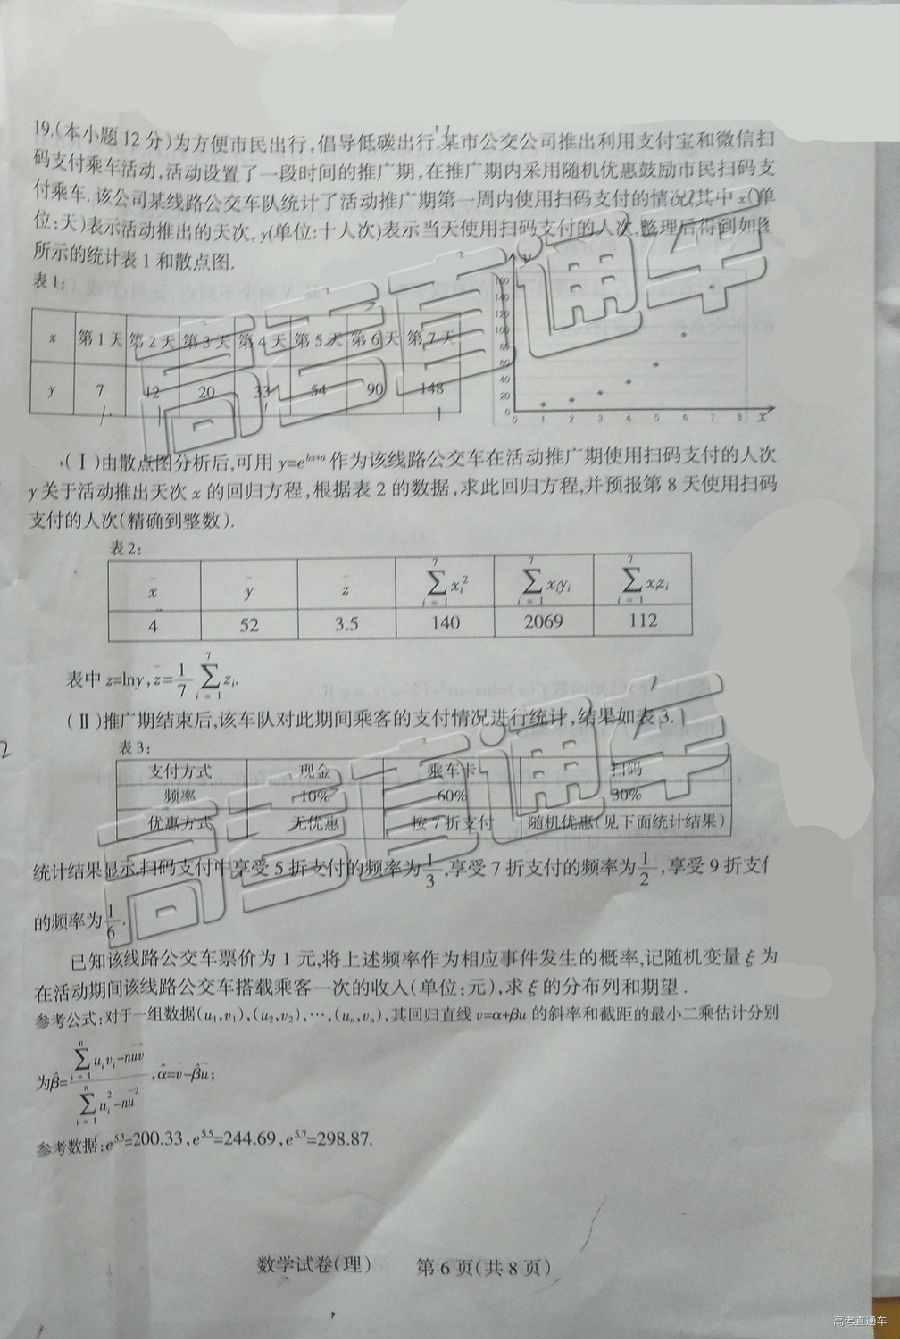 19.(本小题12分)为方便市民出行,倡导低碳出行.某市公交公司推出利用支付宝和微信扫
码支付乘车活动,活动设置了一段时间的推广期,在推广期内采用随机优惠鼓励市民扫码支
付乘车.该公司某线路公交车队统计了活动推广期第一周内使用扫码支付的情况,其中x(单
位:天)表示活动推出的天次,y(单位:十人次)表示当天使用扫码支付的人次,整理后得到如图
所示的统计表1和散点图.
表1:
x 第1天 第2天 第3天 第4天 第5天 第6天 第7天
y 7 12 20 33 54 90 148
160
140
120
100
80
60
40
20
0
0 1 2 3 4 5 6 7 8 x
(Ⅰ)由散点图分析后,可用y=e^{bx+a}作为该线路公交车在活动推广期使用扫码支付的人次
y关于活动推出天次x的回归方程,根据表2的数据,求此回归方程,并预报第8天使用扫码
支付的人次(精确到整数).
表2:
x̄ ȳ z̄ ∑_{i=1}^{7} x_i² ∑_{i=1}^{7} x_iy_i ∑_{i=1}^{7} x_iz_i
4 52 3.5 140 2069 112
表中z=lny,z̄=1/7 ∑_{i=1}^{7} z_i.
(Ⅱ)推广期结束后,该车队对此期间乘客的支付情况进行统计,结果如表3.
表3:
支付方式 现金 乘车卡 扫码
频率 10% 60% 30%
优惠方式 无优惠 按7折支付 随机优惠(见下面统计结果)
统计结果显示,扫码支付中享受5折支付的频率为1/3,享受7折支付的频率为1/2,享受9折支付
的频率为1/6.
已知该线路公交车票价为1元,将上述频率作为相应事件发生的概率,记随机变量ξ为
在活动期间该线路公交车搭载乘客一次的收入(单位:元),求ξ的分布列和期望.
参考公式:对于一组数据(u₁,v₁),(u₂,v₂),…,(uₙ,vₙ),其回归直线v=α+βu的斜率和截距的最小二乘估计分别
为β̂=(∑_{i=1}^{n} u_iv_i-nūv̄)/(∑_{i=1}^{n} u_i²-nū²),α̂=v̄-β̂ū;
参考数据:e^{5.3}=200.33,e^{5.5}=244.69,e^{5.7}=298.87.
数学试卷(理) 第6页(共8页)
高考直通车
高考直通车
高考直通车